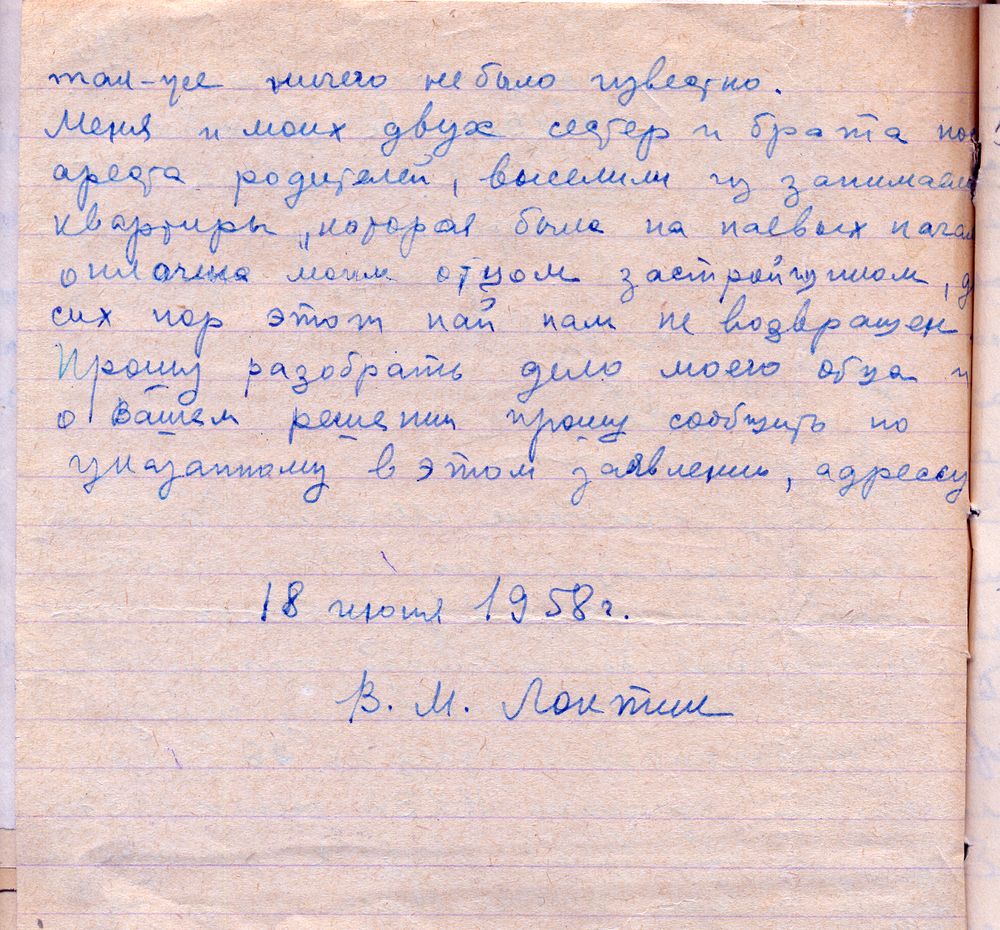 так-же ничего не было известно.
Меня и моих двух сестер и брата пос
ареста родителей, выселили из занимаем
квартиры, которая была на паевых нача
оплачена моим отцом застройщиком, д
сих пор этот пай нам не возвращен.
Прошу разобрать дело моего отца и
о Вашем решении прошу сообщить по
указанному в этом заявлении, адрессу
18 июня 1958 г.
В. М. Локтик